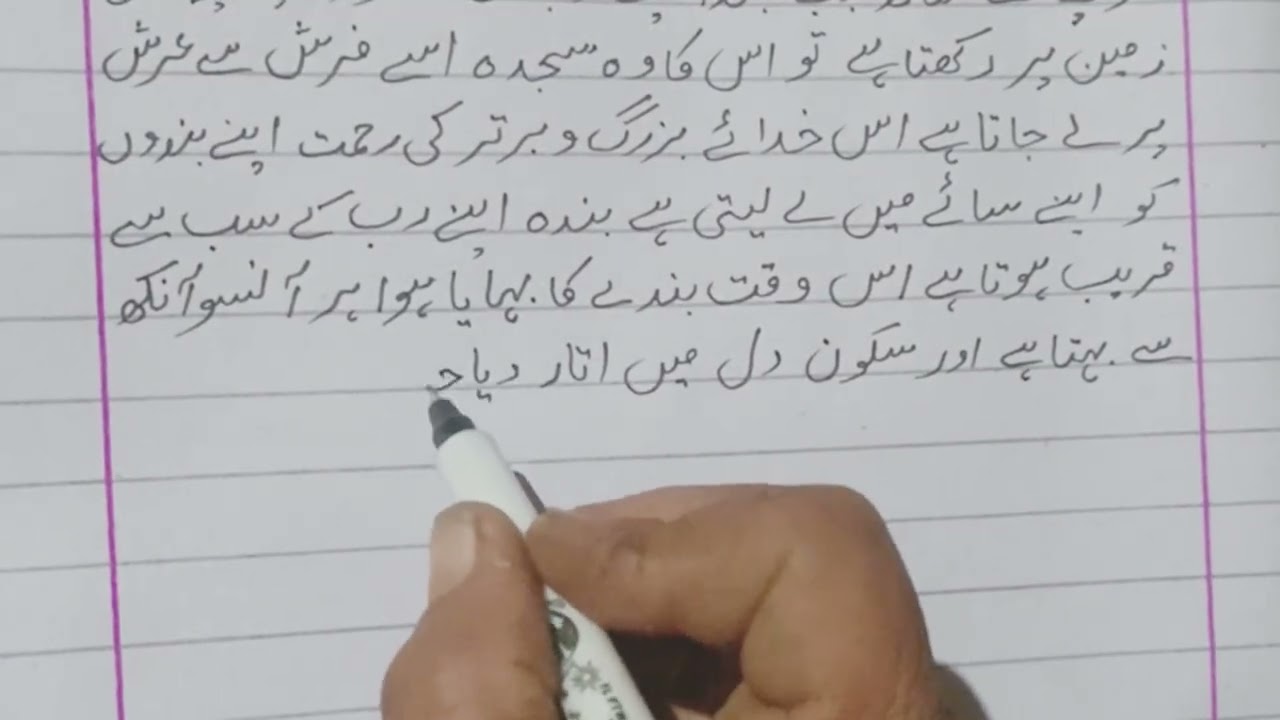 زمین پر رکھتا ہے تو اس کا وہ سجدہ اسے فرش سے عرش
پر لے جاتا ہے اس خدائے بزرگ و برتر کی رحمت اپنے بندوں
کو اپنے سائے میں لے لیتی ہے بندہ اپنے رب کے سب سے
قریب ہوتا ہے اس وقت بندے کا بہایا ہوا ہر آنسو آنکھ
سے بہتا ہے اور سکون دل میں اتار دیا جا